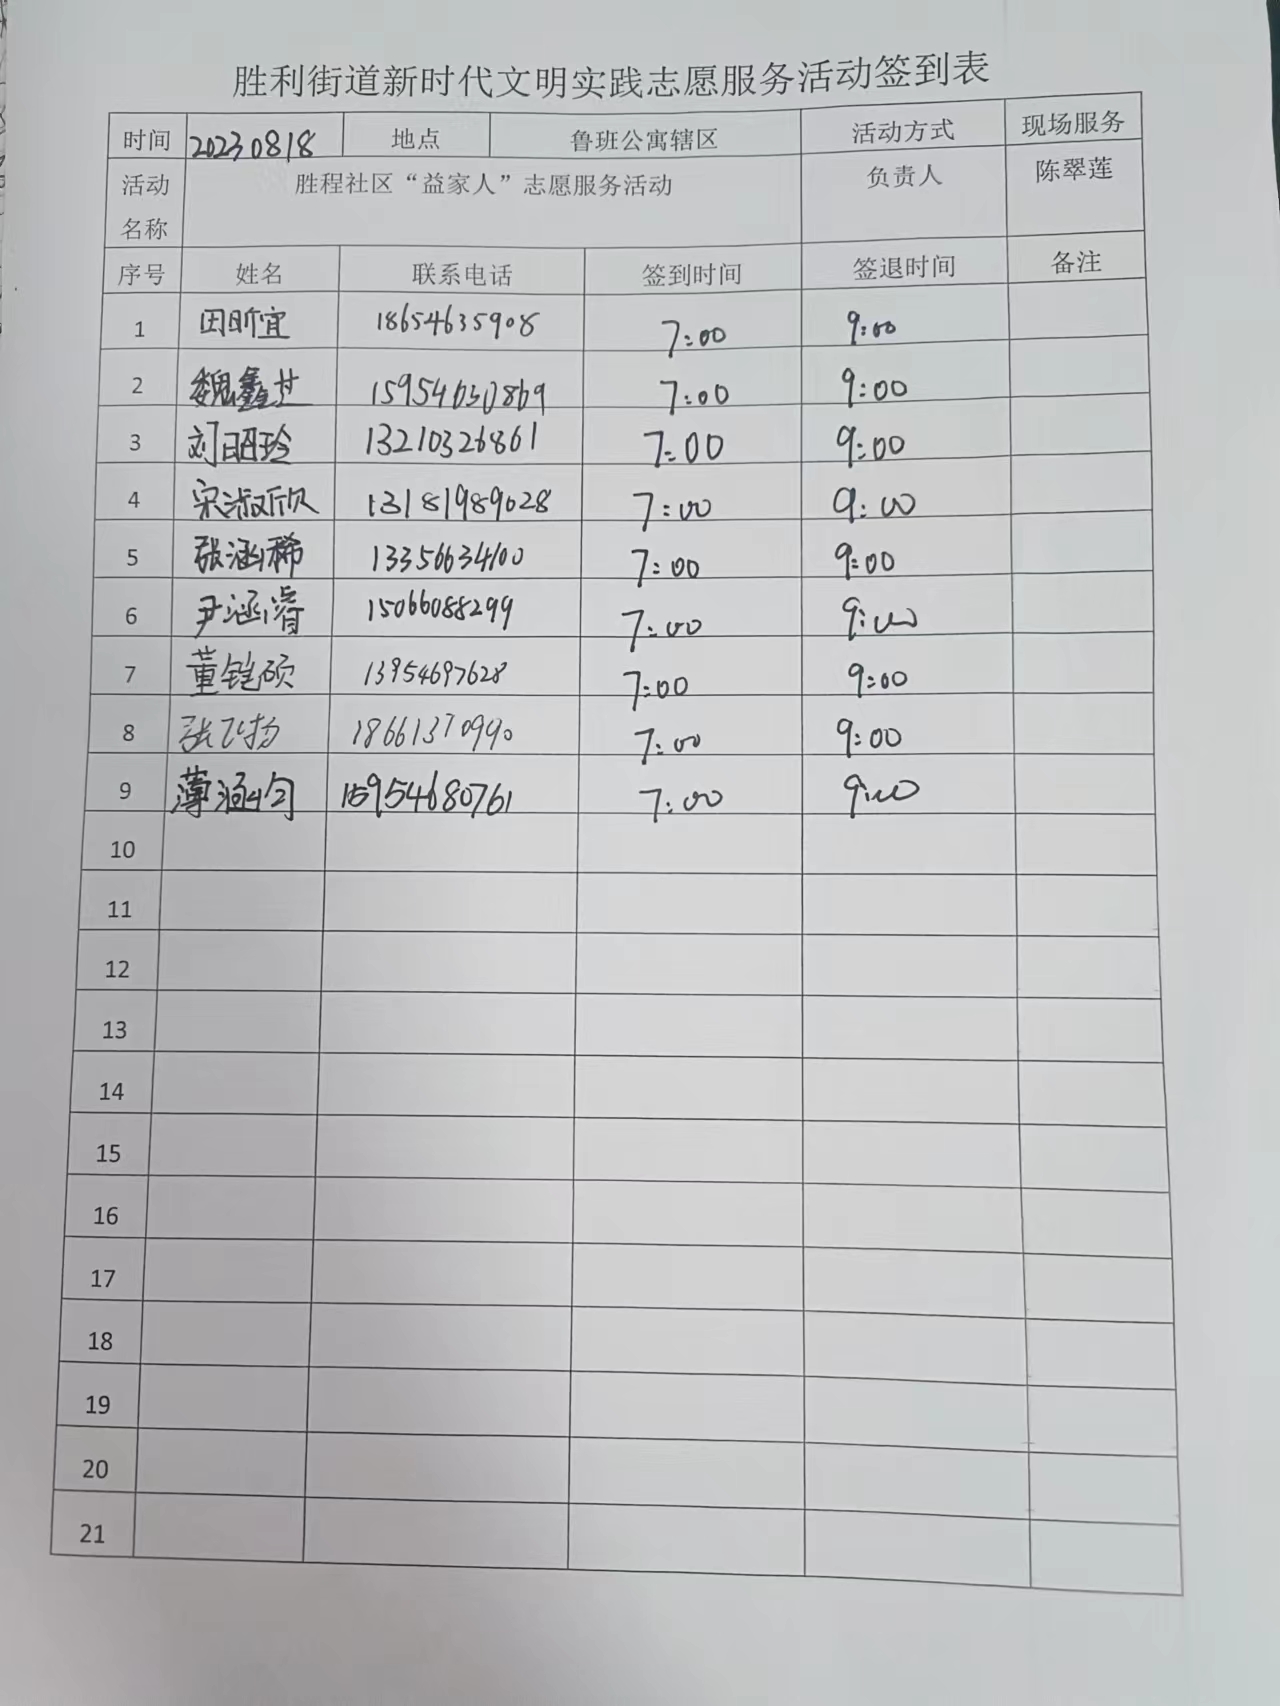 胜利街道新时代文明实践志愿服务活动签到表
时间 20230818 地点 鲁班公寓辖区 活动方式 现场服务
活动名称 胜程社区“益家人”志愿服务活动 负责人 陈翠莲
序号 姓名 联系电话 签到时间 签退时间 备注
1 田昕宜 18654635908 7:00 9:00
2 魏鑫 15954630869 7:00 9:00
3 刘昭玲 13210326861 7:00 9:00
4 宋淑欣 13181989028 7:00 9:00
5 张涵稀 13356634100 7:00 9:00
6 尹涵睿 15066088299 7:00 9:00
7 董铠硕 13954697628 7:00 9:00
8 张飞扬 18661370990 7:00 9:00
9 薄涵匀 15954680761 7:00 9:00
10
11
12
13
14
15
16
17
18
19
20
21